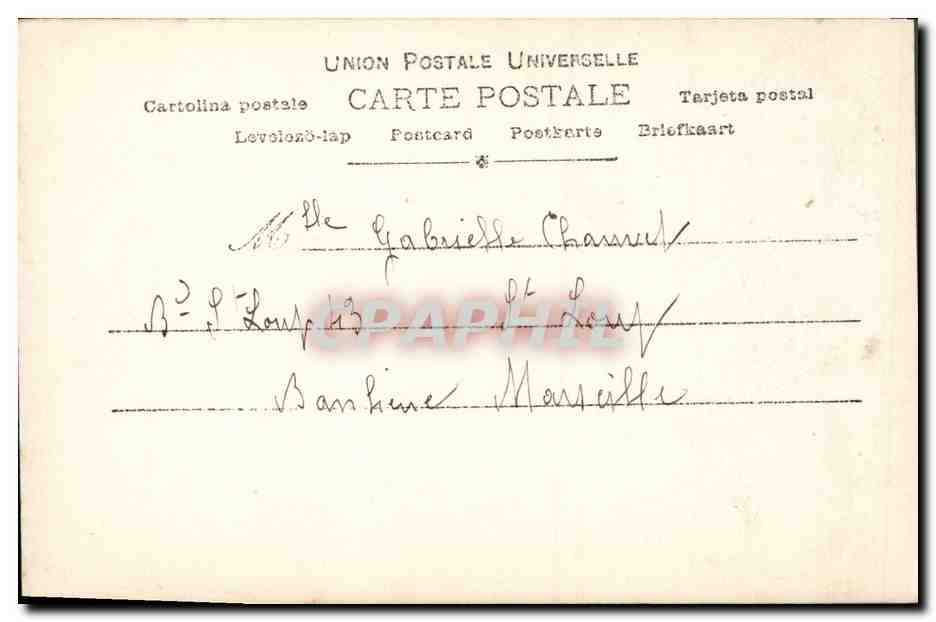 UNION POSTALE UNIVERSELLE
Cartolina postale CARTE POSTALE Tarjeta postal
Levelezö-lap Postcard Postkarte Briefkaart
Mlle Gabrielle Chauvet
Bd St Loup 43 St Loup
Banlieue Marseille
CPAPHIL